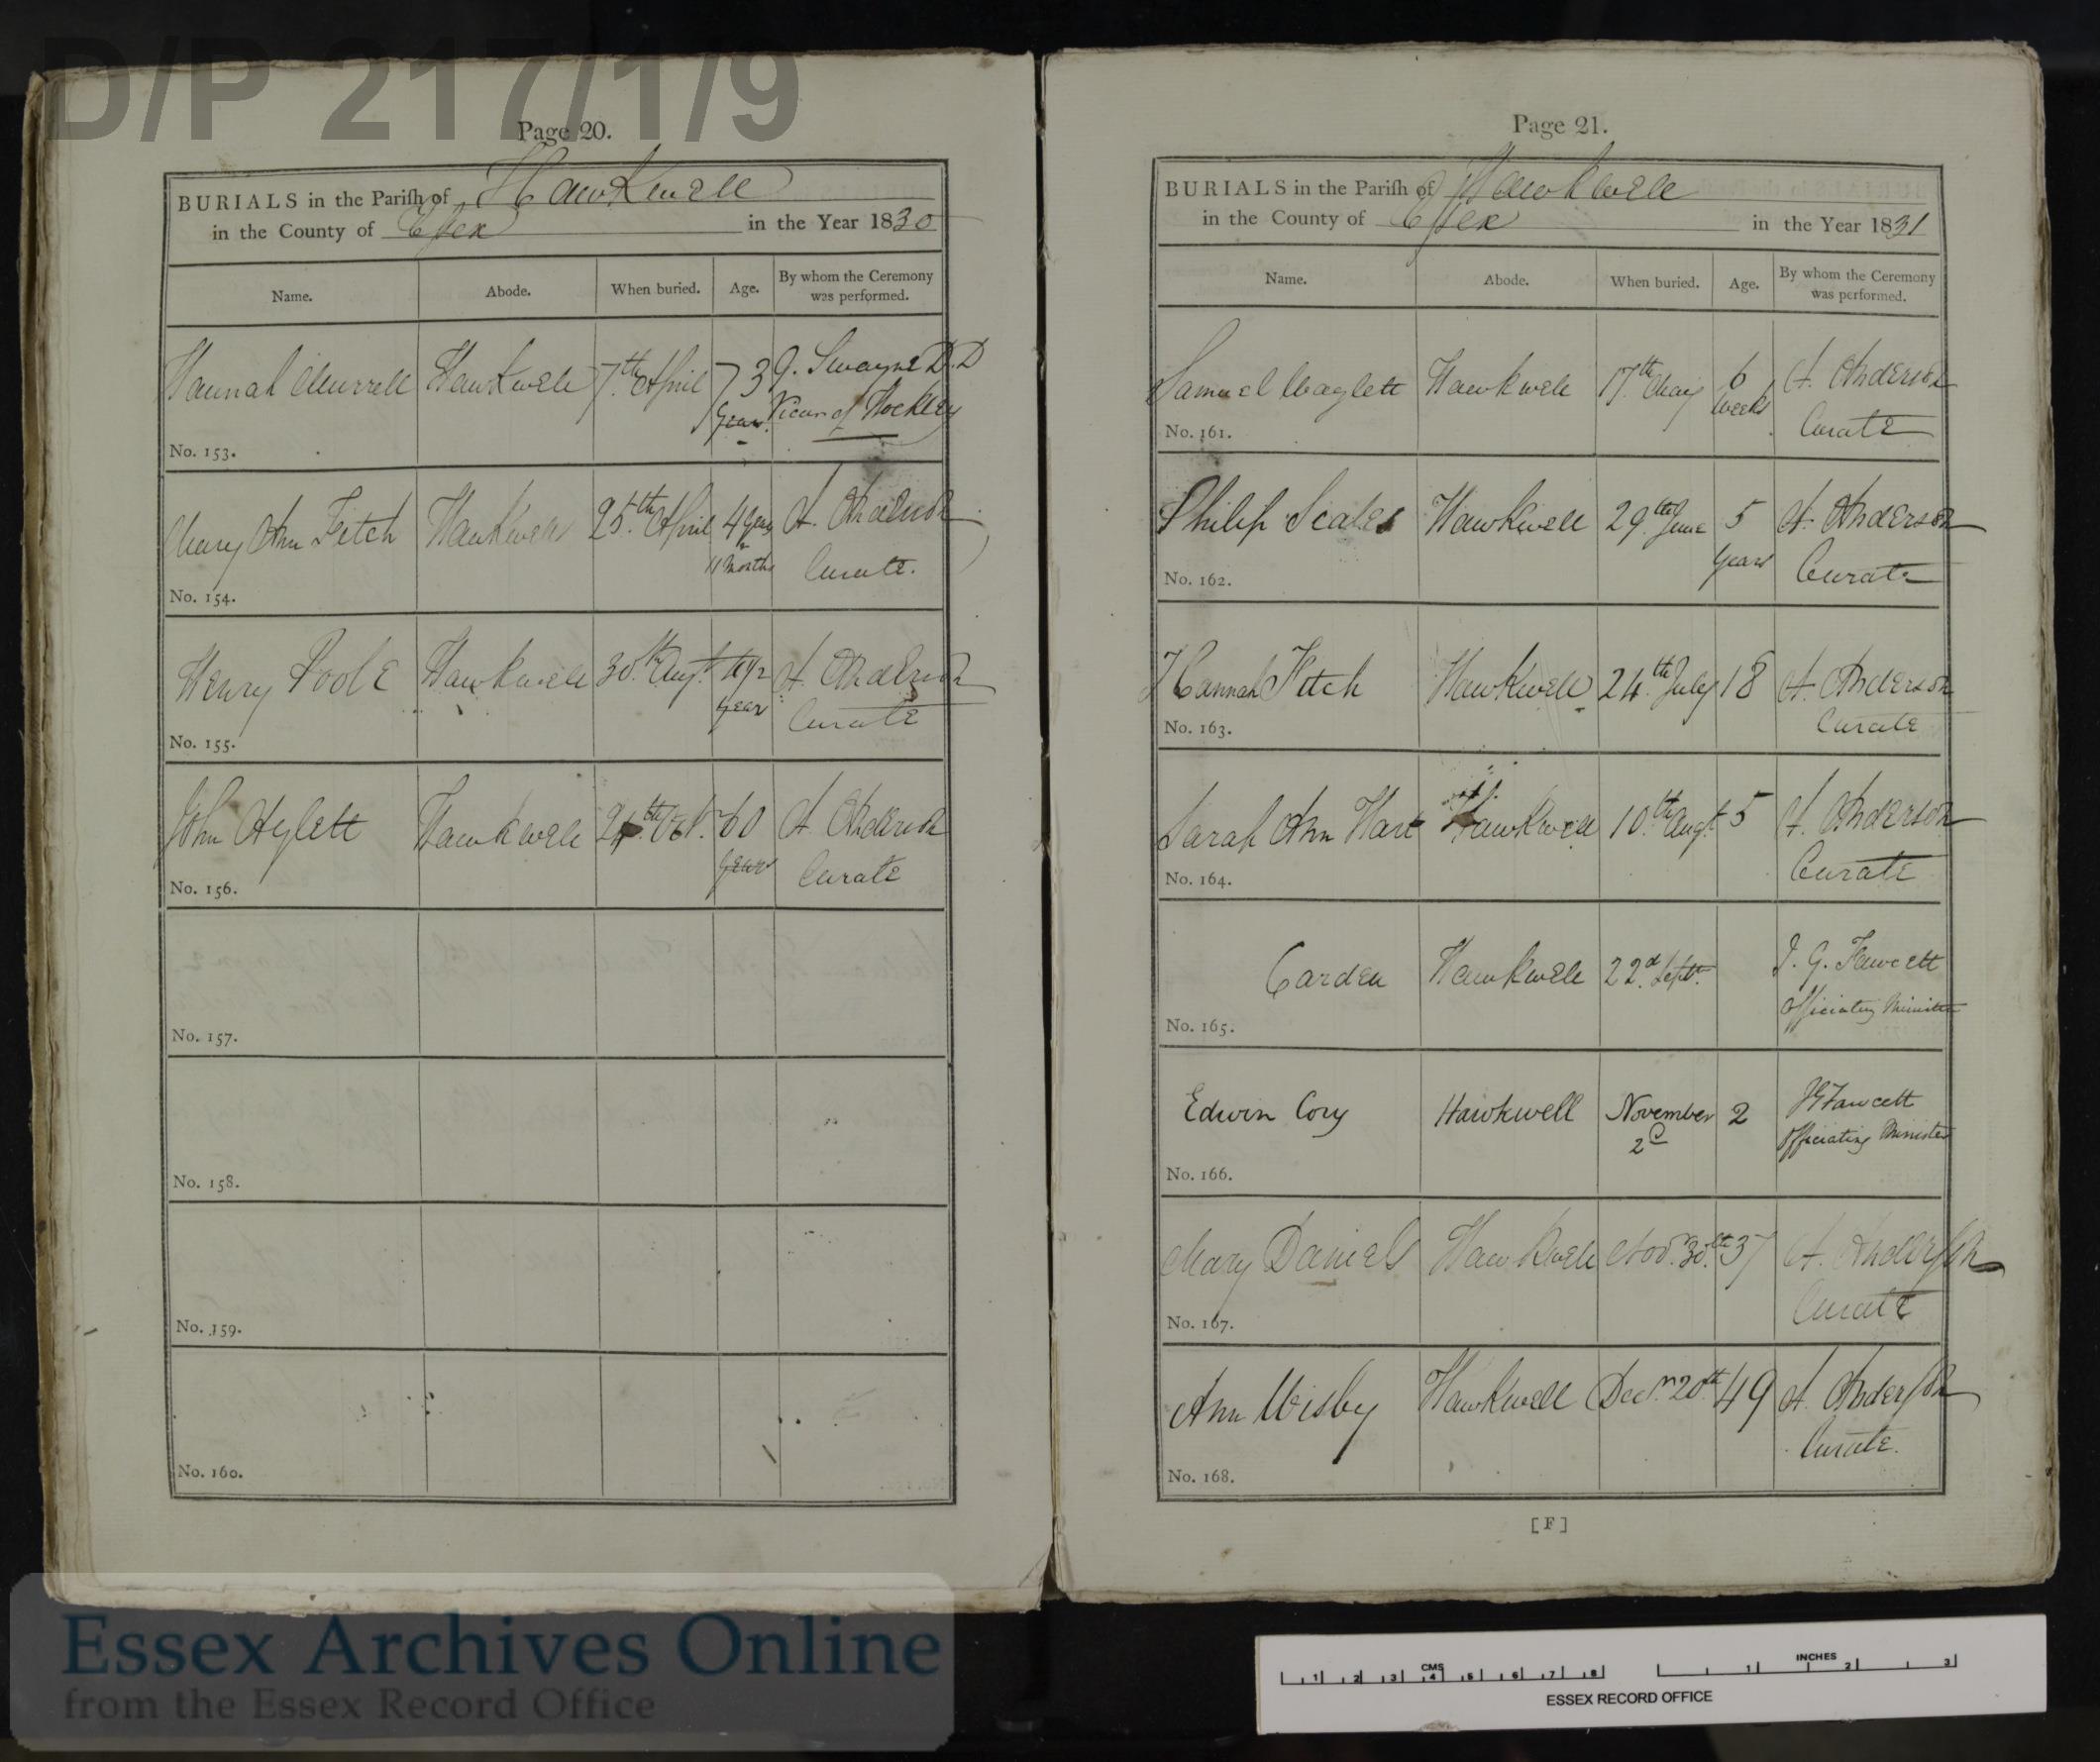 D/P 217/1/9
Page 20.
BURIALS in the Parish of Hawkwell
in the County of Essex in the Year 1830
Name. Abode. When buried. Age. By whom the Ceremony was performed.
Hannah Murrell Hawkwell 7th April 73 Years. Swayne D.D Vicar of Hockley
No. 153.
Mary Ann Fitch Hawkwell 25th April 4 years 11 Months A. Anderson Curate.
No. 154.
Henry Poole Hawkwell 30th Augt. year A. Anderson Curate
No. 155.
John Aylett Hawkwell Oct. 60 years A. Anderson Curate
No. 156.
No. 157.
No. 158.
No. 159.
No. 160.
Page 21.
BURIALS in the Parish of Hawkwell
in the County of Essex in the Year 1831
Name. Abode. When buried. Age. By whom the Ceremony was performed.
Samuel Hawkwell 17th May 6 weeks A. Anderson Curate
No. 161.
Philip Scales Hawkwell 29th June 5 years A. Anderson Curate
No. 162.
Hannah Fitch Hawkwell 24th July 18 A. Anderson Curate
No. 163.
Sarah Ann Hart Hawkwell 10th Augt. 5 A. Anderson Curate
No. 164.
Carden Hawkwell 22d. Septr. J. G. Fawcett Officiating Minister
No. 165.
Edwin Cory Hawkwell November 2d 2 JG Fawcett Officiating Minister
No. 166.
Mary Daniels Hawkwell Novr. 30th 37 A. Anderson Curate
No. 167.
Ann Wisby Hawkwell Decr. 20th 49 A. Anderson Curate.
No. 168.
[F]
Essex Archives Online
from the Essex Record Office
CMS 1 2 3 4 5 6 7 8
INCHES 1 2 3
ESSEX RECORD OFFICE